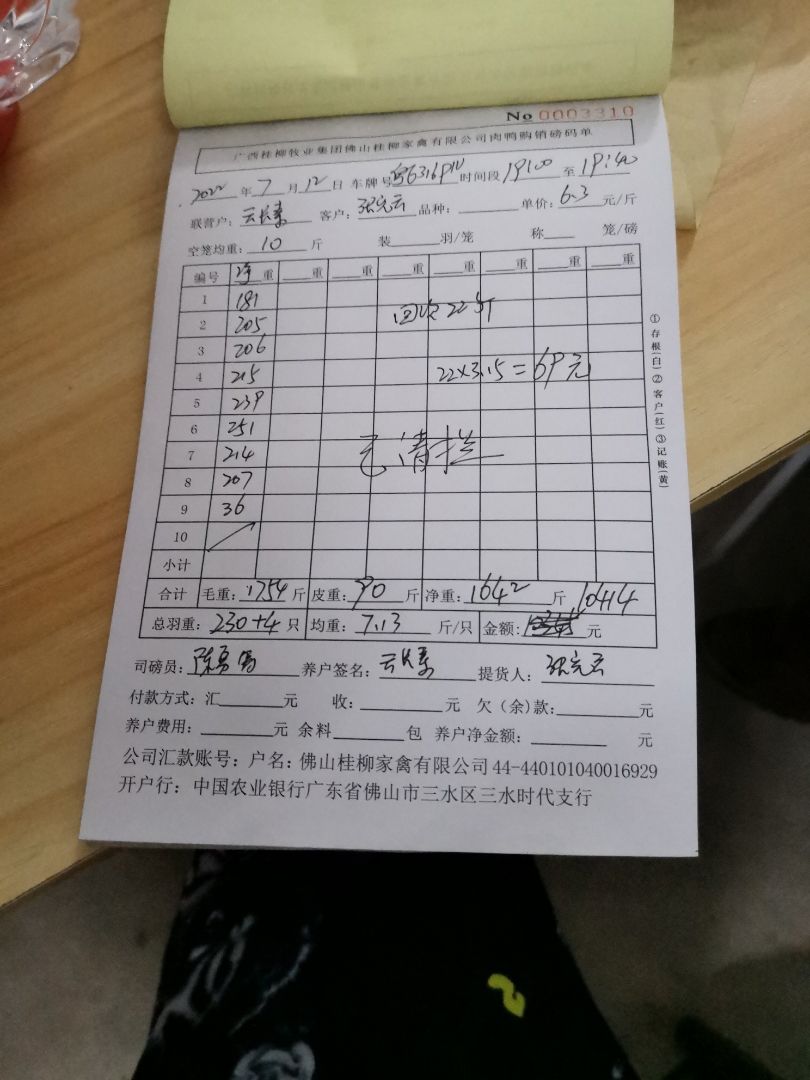 No 0003310
广西桂柳牧业集团佛山桂柳家禽有限公司肉鸭购销磅码单
2022年7月12日 车牌号 时间段19:00至19:40
联营户: 客户: 品种: 单价:6.3元/斤
空笼均重:10斤 装 羽/笼 称 笼/磅
编号 净重 重 重 重 重 重 重 重
1 181
2 205 回收22斤
3 206
4 215 22×3.15=69元
5 239
6 251
7 214 已清拦
8 207
9 36
10
小计
合计 毛重:1754斤 皮重:90斤 净重:1642斤 10414
总羽重:230+4只 均重:7.13斤/只 金额: 元
司磅员: 养户签名: 提货人:
付款方式:汇 元 收: 元 欠(余)款: 元
养户费用: 元 余料 包 养户净金额: 元
公司汇款账号:户名:佛山桂柳家禽有限公司44-440101040016929
开户行:中国农业银行广东省佛山市三水区三水时代支行
①存根(白)②客户(红)③记账(黄)